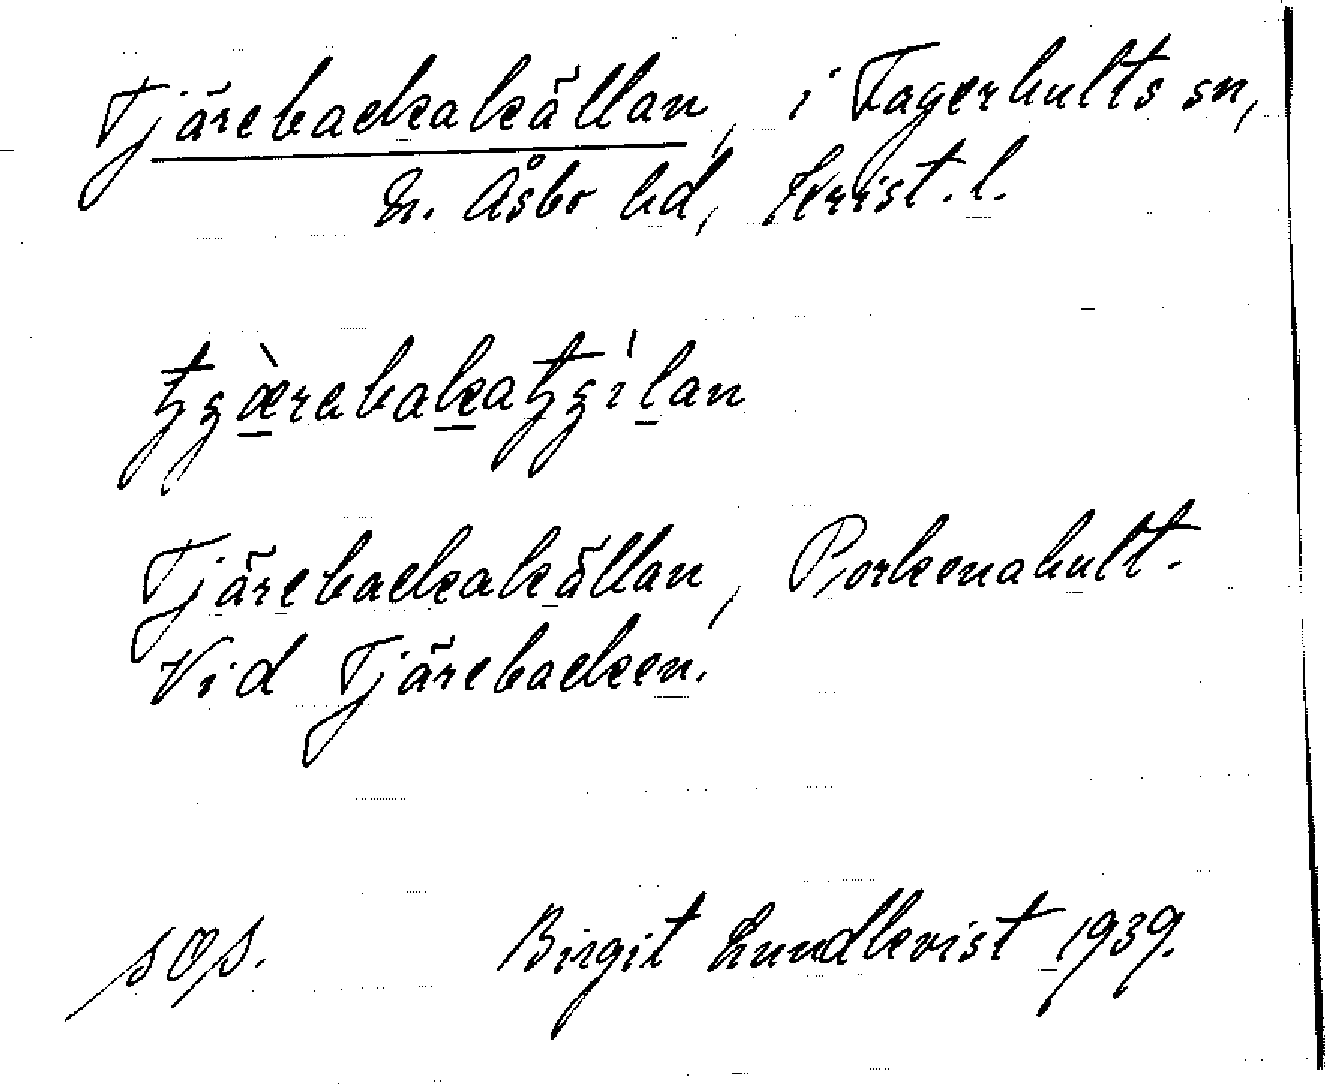 Tjärebackakällan, i Fagerhults sn,
N. Åsbo hd, Krist. l.
Tjärebackakällan, Porkenahult.
Vid Tjärebacken.
sop. Birgit Lundkvist 1939.